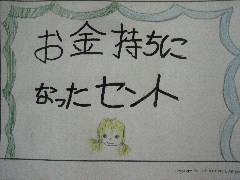 お金持ちに
なったセント